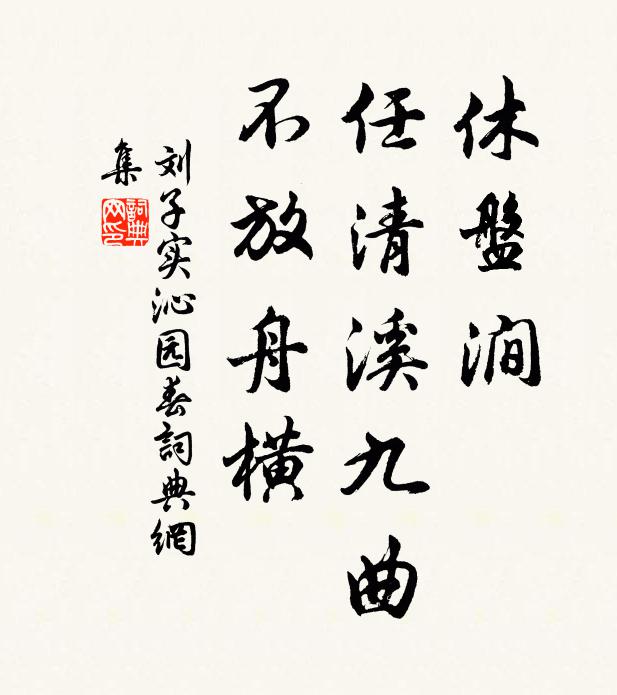 休盤澗
任清溪九曲
不放舟横
刘子实沁园春詞典網
集
詞典
网印